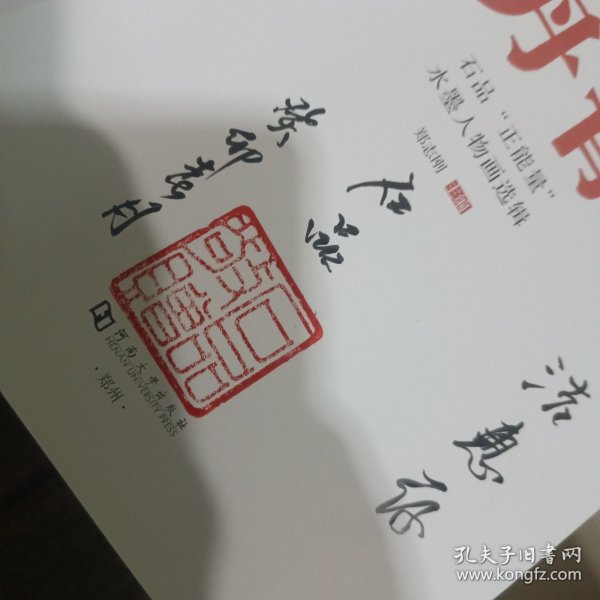 丹青
石品“正能量”
水墨人物画选辑
郑志刚 主编
惠存
石品
癸卯春月
河南大学出版社
HENAN UNIVERSITY PRESS
·郑州·
孔夫子旧书网
www.kongfz.com